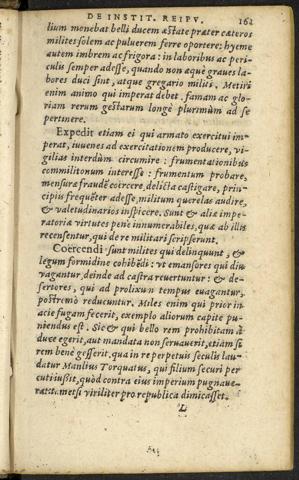 DE INSTIT. REIPV. 162
lium monebat belli ducem æstate præter cæteros
milites solem ac puluerem ferre oportere; hyeme
autem imbrem ac frigora: in laboribus ac peri-
culis semper adesse, quando non æquè graues la-
bores duci sint, atque gregario militi. Metiri
enim animo qui imperat debet, famam ac glo-
riam rerum gestarum longè plurimùm ad se
pertinere.
Expedit etiam ei qui armato exercitui im-
perat, iuuenes ad exercitationem producere, vi-
gilias interdùm circumire: frumentationibus
commilitonum interesse: frumentum probare,
mensuræ fraudē coërcere, delicta castigare, prin-
cipiis frequēter adesse, militum querelas audire,
& valetudinarios inspicere. Sunt & aliæ impe-
ratoria virtutes penè innumerabiles, quæ ab illis
recensentur, qui de re militari scripserunt.
Coërcendi sunt milites qui delinquunt, &
legum formidine cohibēdi: vt emansores qui diu
vagantur, deinde ad castra reuertuntur: & de-
sertores, qui ad prolixum tempus euagantur,
postremò reducuntur. Miles enim qui prior in
acie fugam fecerit, exemplo aliorum capite pu-
niendus est. Sic & qui bello rem prohibitam à
duce egerit, aut mandata non seruauerit, etiam si
rem benè gesserit, qua in re perpetuis seculis lau-
datur Manlius Torquatus, qui filium securi per
cuti iußit, quòd contra eius imperium pugnaue-
rat: tametsi viriliter pro republica dimicasset.
L